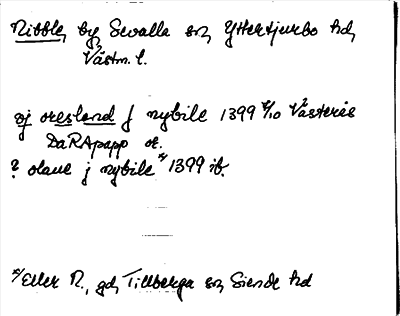 Nibble, by Sevalla sn, Yttertjurbo hd,
Västm. l.
oj oresland j nybile 1399 4/10 Västerås
DaRApapp or.
? olaue j nybile x/ 1399 ib.
x/ Eller N., gd, Tillberga sn, Siende hd